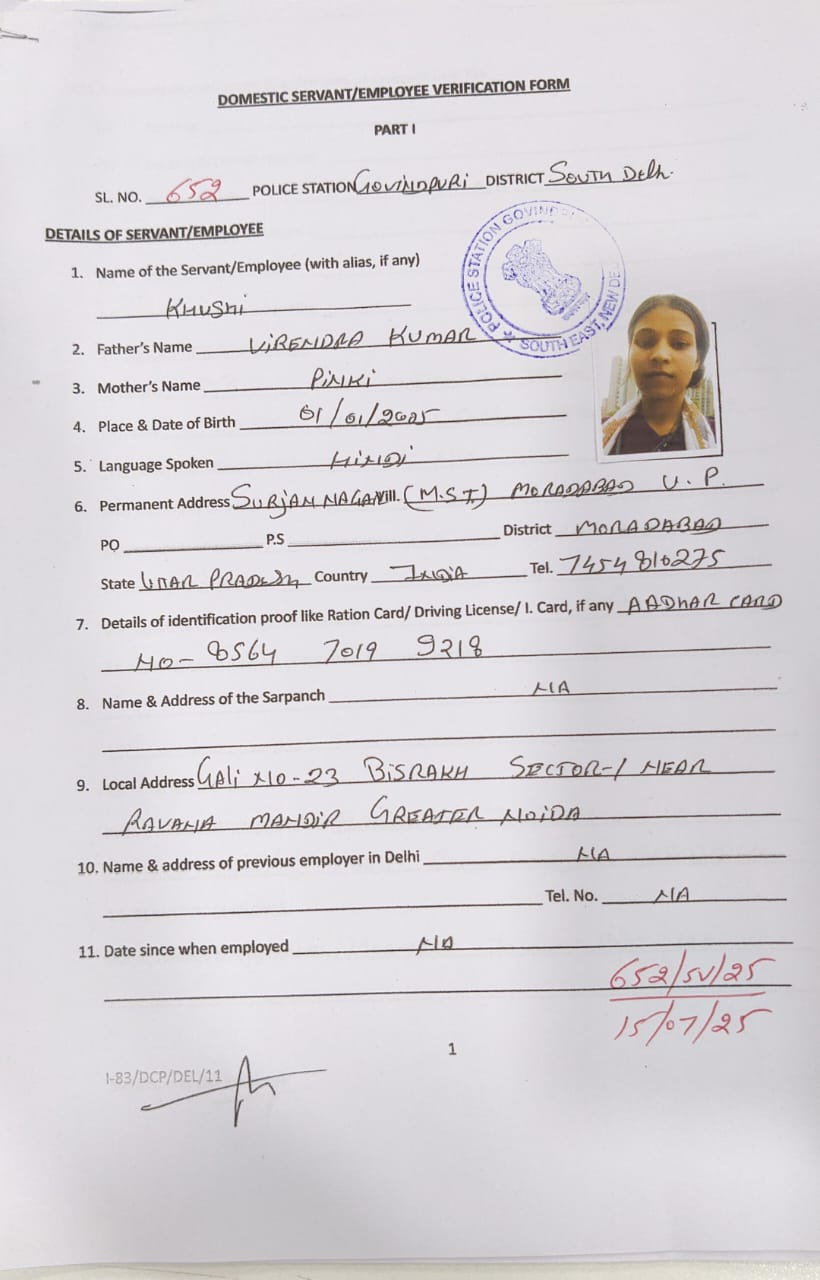 DOMESTIC SERVANT/EMPLOYEE VERIFICATION FORM
PART I
SL. NO. 652 POLICE STATION GOVINDPURI DISTRICT SOUTH Delh.
DETAILS OF SERVANT/EMPLOYEE
POLICE STATION GOVIND
SOUTH EAST, NEW DE
1. Name of the Servant/Employee (with alias, if any)
KHUSHI
2. Father's Name VIRENDRA KUMAR
3. Mother's Name PINKI
4. Place & Date of Birth 01/01/2005
5. Language Spoken HINDI
6. Permanent Address SURJAN NAGAR Vill. (M.S.I) MORADABAD U.P.
PO P.S District MORADABAD
State UTAR PRADESH Country INDIA Tel. 7454810275
7. Details of identification proof like Ration Card/ Driving License/ I. Card, if any AADHAR CARD
NO- 8564 7019 9218
8. Name & Address of the Sarpanch NA
9. Local Address GALI NO-23 BISRAKH SECTOR-1 NEAR
RAVANA MANDIR GREATER NOIDA
10. Name & address of previous employer in Delhi NA
Tel. No. NA
11. Date since when employed NA
652/SV/25
15/07/25
1
I-83/DCP/DEL/11